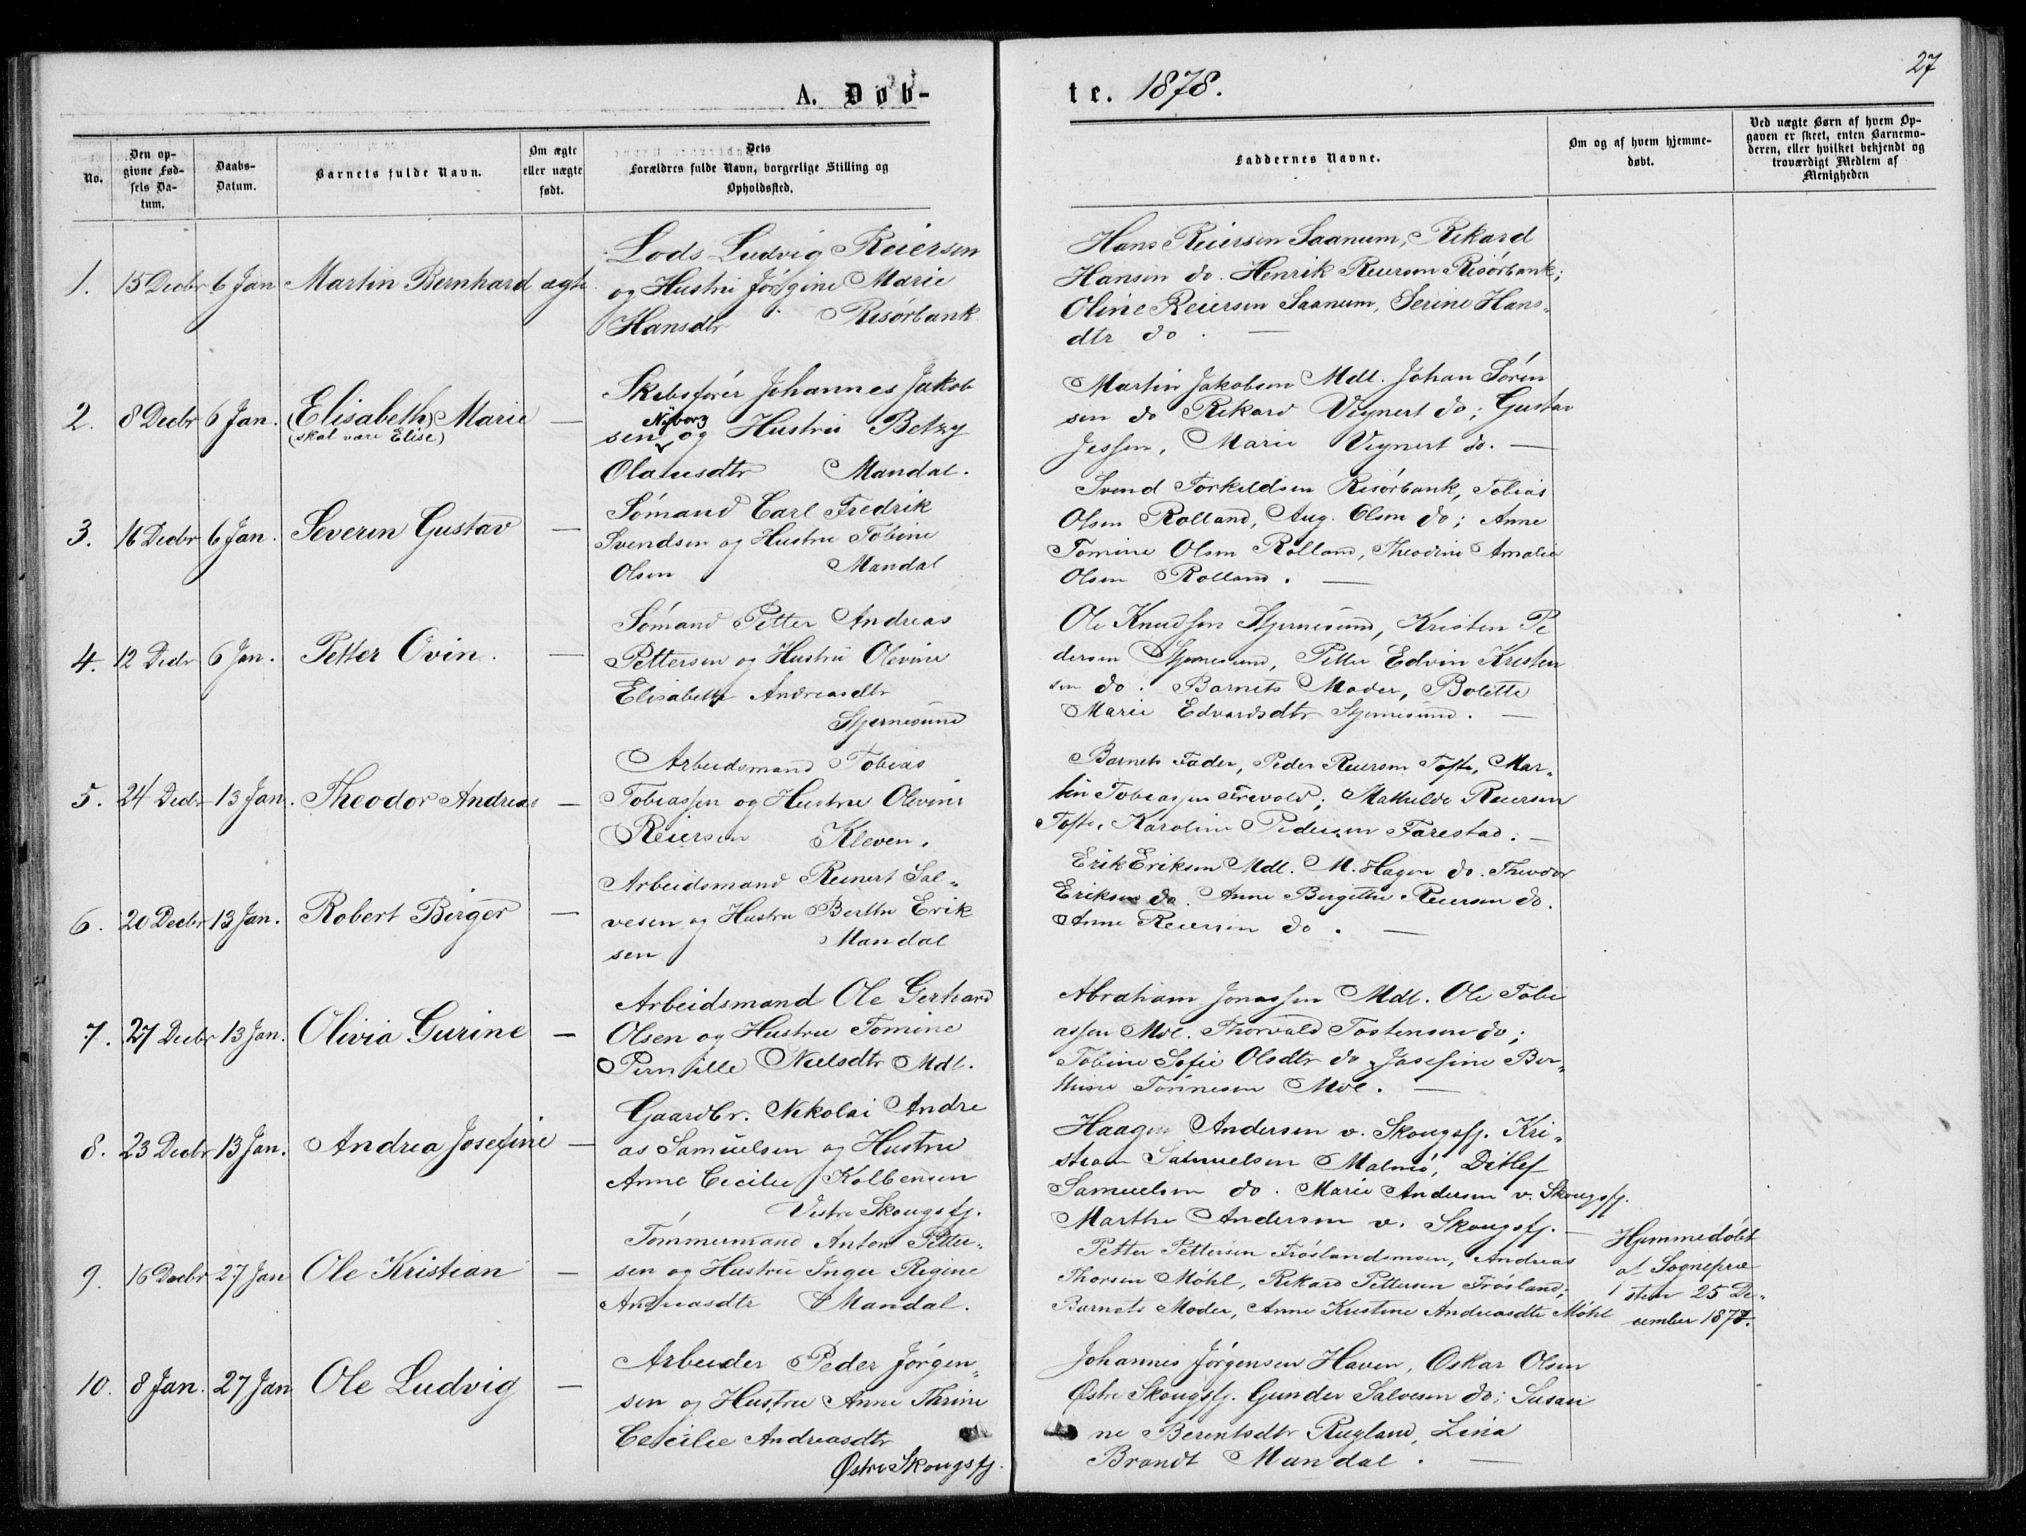 27
A. Døb-
te. 1878.
No.
Den op-
givne Fød-
sels Da-
tum.
Daabs-
Datum.
Barnets fulde Navn.
Om ægte
eller uægte
født.
Dets
Forældres fulde Navn, borgerlige Stilling og
Opholdssted.
Faddernes Navne.
Om og af hvem hjemme-
døbt.
Ved uægte Børn af hvem Op-
gaven er skeet, enten Barnemo-
deren, eller hvilket bekjendt og
troværdigt Medlem af
Menigheden
1. 15 Decbr 6 Jan Martin Bernhard ægte
Lods Ludvig Reiersen
og Hustru Jørgine Marie
Hansdtr Risørbank
Hans Reiersen Saanum, Rikard
Hansen do. Henrik Reiersen Risørbank;
Oline Reiersen Saanum, Serine Hans-
dtr do. —
2. 8 Decbr 6 Jan. (Elisabeth) Marie —
(skal være Elise)
Skibsfører Johannes Jakob
Nyborg
sen og Hustru Betzy
Olausdtr Mandal.
Martin Jakobsen Mdl. Johan Søren
sen do Rikard Vignert do; Gustav
Jessen, Marie Vignert do. —
3. 16 Decbr 6 Jan. Severin Gustav —
Sømand Carl Fredrik
Svendsen og Hustru Tobine
Olsen Mandal
Svend Torkildsen Risørbank, Tobias
Olsen Rolland, Aug. Olsen do; Anne
Tomine Olsen Rolland, Theodine Amalie
Olsen Rolland. —
4. 12 Decbr 6 Jan. Petter Ovin. —
Sømand Petter Andreas
Pettersen og Hustru Olevine
Elisabeth Andreasdtr
Stjernesund
Ole Knudssen Stjernesund, Kristen Pe
dersen Stjernesund, Petter Edvin Kristen
sen do. Barnets Moder, Bolette
Marie Edvardsdtr Stjernesund. —
5. 24 Decbr 13 Jan. Theodor Andreas —
Arbeidsmand Tobias
Tobiassen og Hustru Olevine
Reiersen Kleven.
Barnets Fader, Peder Reiersen Tofte, Mar-
tin Tobiassen Frevold; Mathilde Reiersen
Tofte, Karoline Pedersen Farestad. —
6. 20 Decbr 13 Jan. Robert Birger —
Arbeidsmand Reinert Sal-
vesen og Hustru Berthe Erik
sen Mandal
Erik Eriksen Mdl. M. Hagen do. Theodor
Eriksen do. Anne Birgithe Reiersen do.
Anne Reiersen do. —
7. 27 Decbr 13 Jan. Olivia Gurine —
Arbeidsmand Ole Gerhard
Olsen og Hustru Tomine
Pernille Nielsdtr Mdl.
Abraham Jonassen Mdl. Ole Tobi
assen Mdl. Thorvald Tostensen do;
Tobine Sofie Olsdtr do Josefine Ber-
thine Tønnesen Mdl. —
8. 23 Decbr 13 Jan. Andrea Josefine —
Gaardbr. Nikolai Andre
as Samuelsen og Hustru
Anne Cicilie Kolbensen
Vestre Skougsfj.
Haagen Andersen v. Skougsfj. Kri-
stian Samuelsen Malmø, Ditlef
Samuelsen do. Marie Andersen v. Skougsfj.
Marthe Andersen v. Skougsfj. —
9. 16 Decbr 27 Jan Ole Kristian —
Tømmermand Anton Petter-
sen og Hustru Inger Regine
Andreasdtr Mandal.
Petter Pettersen Frøslandsmoen, Andreas
Thorsen Møhl, Rikard Pettersen Frøsland;
Barnets Moder, Anne Kristine Andreasdtr Møhl
Hjemmedøbt
af Sognepræ
sten 25 De-
cember 1877.
10. 8 Jan. 27 Jan Ole Ludvig —
Arbeider Peder Jørgen-
sen og Hustru Anne Thrine
Cecilie Andreasdtr
Østre Skougsfj.
Johannes Jørgensen Haven, Oskar Olsen
Østre Skougsfj. Gunder Salvesen do; Susan
ne Berentsdtr Rugland, Lina
Brandt Mandal. —